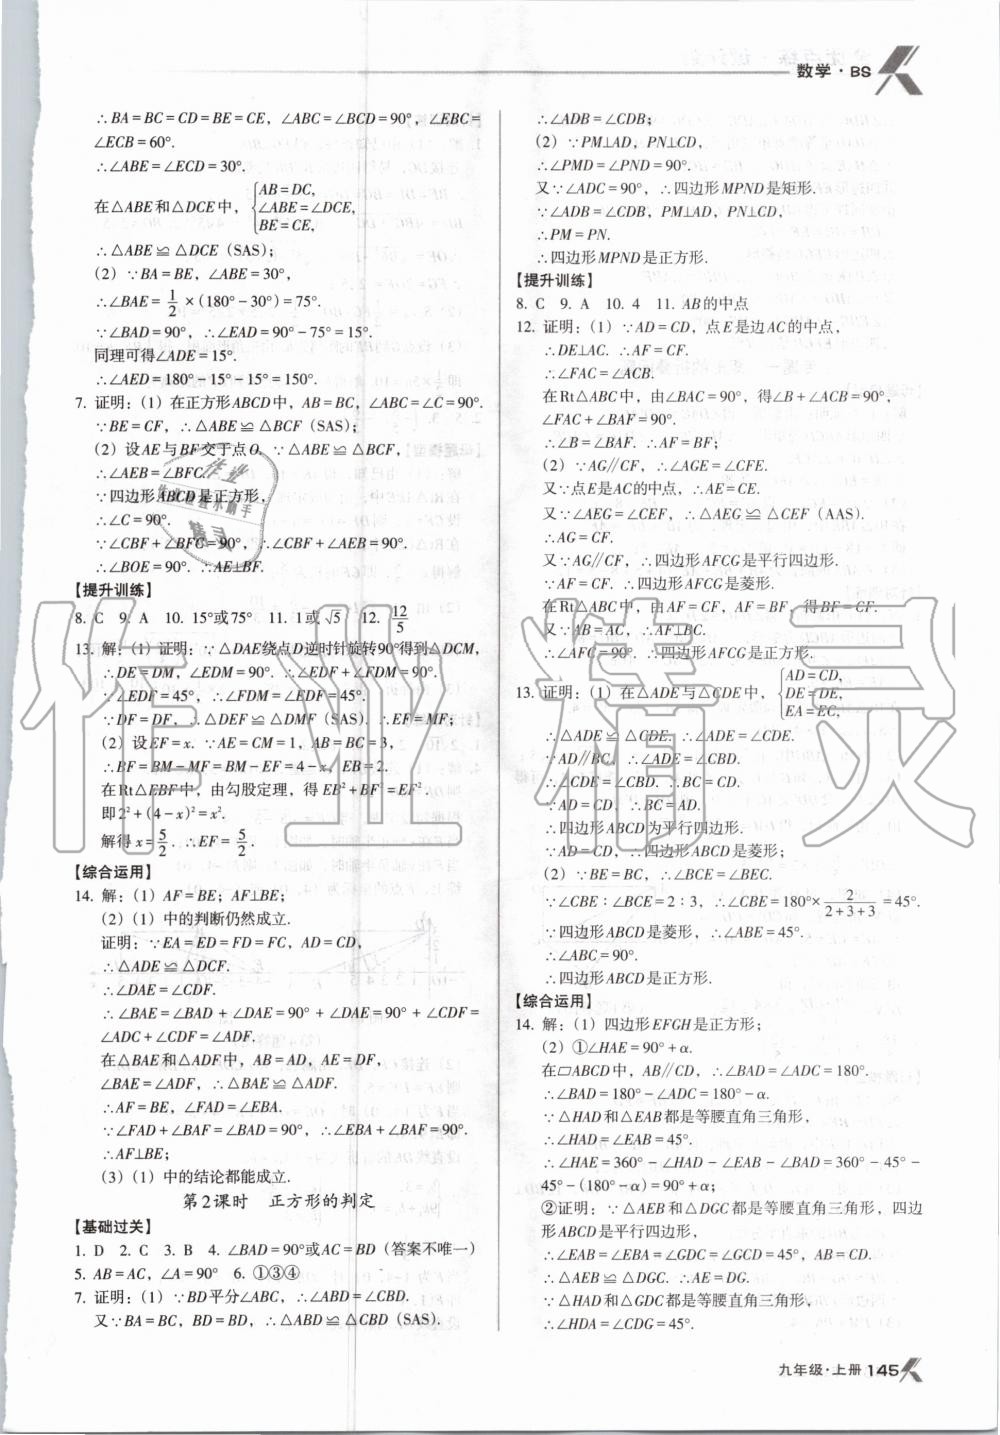 数学·BS
∴BA=BC=CD=BE=CE，∠ABC=∠BCD=90°，∠EBC=
∠ECB=60°.
∴∠ABE=∠ECD=30°.
在△ABE和△DCE中，{AB=DC,
∠ABE=∠DCE,
BE=CE,
∴△ABE≌△DCE（SAS）；
（2）∵BA=BE，∠ABE=30°，
∴∠BAE=1/2×(180°-30°)=75°.
∵∠BAD=90°，∴∠EAD=90°-75°=15°.
同理可得∠ADE=15°.
∴∠AED=180°-15°-15°=150°.
7. 证明：（1）在正方形ABCD中，AB=BC，∠ABC=∠C=90°.
∵BE=CF，∴△ABE≌△BCF（SAS）；
（2）设AE与BF交于点O. ∵△ABE≌△BCF，
∴∠AEB=∠BFC.
∵四边形ABCD是正方形，
∴∠C=90°.
∵∠CBF+∠BFC=90°，∴∠CBF+∠AEB=90°.
∴∠BOE=90°. ∴AE⊥BF.
【提升训练】
8. C 9. A 10. 15°或75° 11. 1或√5 12. 12/5
13. 解：（1）证明：∵△DAE绕点D逆时针旋转90°得到△DCM，
∴DE=DM，∠EDM=90°. ∴∠EDF+∠FDM=90°.
∵∠EDF=45°，∴∠FDM=∠EDF=45°.
∵DF=DF，∴△DEF≌△DMF（SAS）. ∴EF=MF；
（2）设EF=x. ∵AE=CM=1，AB=BC=3，
∴BF=BM-MF=BM-EF=4-x，EB=2.
在Rt△EBF中，由勾股定理，得EB²+BF²=EF².
即2²+(4-x)²=x².
解得x=5/2. ∴EF=5/2.
【综合运用】
14. 解：（1）AF=BE；AF⊥BE；
（2）（1）中的判断仍然成立.
证明：∵EA=ED=FD=FC，AD=CD，
∴△ADE≌△DCF.
∴∠DAE=∠CDF.
∴∠BAE=∠BAD+∠DAE=90°+∠DAE=90°+∠CDF=
∠ADC+∠CDF=∠ADF.
在△BAE和△ADF中，AB=AD，AE=DF，
∠BAE=∠ADF，∴△BAE≌△ADF.
∴AF=BE，∠FAD=∠EBA.
∵∠FAD+∠BAF=∠BAD=90°，∴∠EBA+∠BAF=90°.
∴AF⊥BE；
（3）（1）中的结论都能成立.
第2课时 正方形的判定
【基础过关】
1. D 2. C 3. B 4. ∠BAD=90°或AC=BD（答案不唯一）
5. AB=AC，∠A=90° 6. ①③④
7. 证明：（1）∵BD平分∠ABC，∴∠ABD=∠CBD.
又∵BA=BC，BD=BD，∴△ABD≌△CBD（SAS）.
∴∠ADB=∠CDB；
（2）∵PM⊥AD，PN⊥CD，
∴∠PMD=∠PND=90°.
又∵∠ADC=90°，∴四边形MPND是矩形.
∵∠ADB=∠CDB，PM⊥AD，PN⊥CD，
∴PM=PN.
∴四边形MPND是正方形.
【提升训练】
8. C 9. A 10. 4 11. AB的中点
12. 证明：（1）∵AD=CD，点E是边AC的中点，
∴DE⊥AC. ∴AF=CF.
∴∠FAC=∠ACB.
在Rt△ABC中，由∠BAC=90°，得∠B+∠ACB=90°，
∠FAC+∠BAF=90°.
∴∠B=∠BAF. ∴AF=BF；
（2）∵AG∥CF，∴∠AGE=∠CFE.
又∵点E是AC的中点，∴AE=CE.
又∵∠AEG=∠CEF，∴△AEG≌△CEF（AAS）.
∴AG=CF.
又∵AG∥CF，∴四边形AFCG是平行四边形.
∵AF=CF. ∴四边形AFCG是菱形.
在Rt△ABC中，由AF=CF，AF=BF，得BF=CF.
又∵AB=AC，∴AF⊥BC.
∴∠AFC=90°. ∴四边形AFCG是正方形.
13. 证明：（1）在△ADE与△CDE中，{AD=CD,
DE=DE,
EA=EC,
∴△ADE≌△CDE，∴∠ADE=∠CDE.
∵AD∥BC，∴∠ADE=∠CBD.
∴∠CDE=∠CBD. ∴BC=CD.
∵AD=CD，∴BC=AD.
∴四边形ABCD为平行四边形.
∵AD=CD，∴四边形ABCD是菱形；
（2）∵BE=BC，∴∠BCE=∠BEC.
∵∠CBE∶∠BCE=2∶3，∴∠CBE=180°×2/(2+3+3)=45°.
∵四边形ABCD是菱形，∴∠ABE=45°.
∴∠ABC=90°.
∴四边形ABCD是正方形.
【综合运用】
14. 解：（1）四边形EFGH是正方形；
（2）①∠HAE=90°+α.
在▱ABCD中，AB∥CD，∴∠BAD+∠ADC=180°.
∴∠BAD=180°-∠ADC=180°-α.
∵△HAD和△EAB都是等腰直角三角形，
∴∠HAD=∠EAB=45°.
∴∠HAE=360°-∠HAD-∠EAB-∠BAD=360°-45°-
45°-(180°-α)=90°+α；
②证明：∵△AEB和△DGC都是等腰直角三角形，四边
形ABCD是平行四边形，
∴∠EAB=∠EBA=∠GDC=∠GCD=45°，AB=CD.
∴△AEB≌△DGC. ∴AE=DG.
∵△HAD和△GDC都是等腰直角三角形，
∴∠HDA=∠CDG=45°.
九年级·上册 145
作业精灵